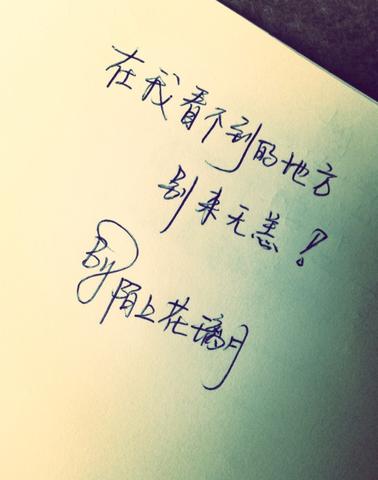 在我看不到的地方
别来无恙！
By 陌上花璃月